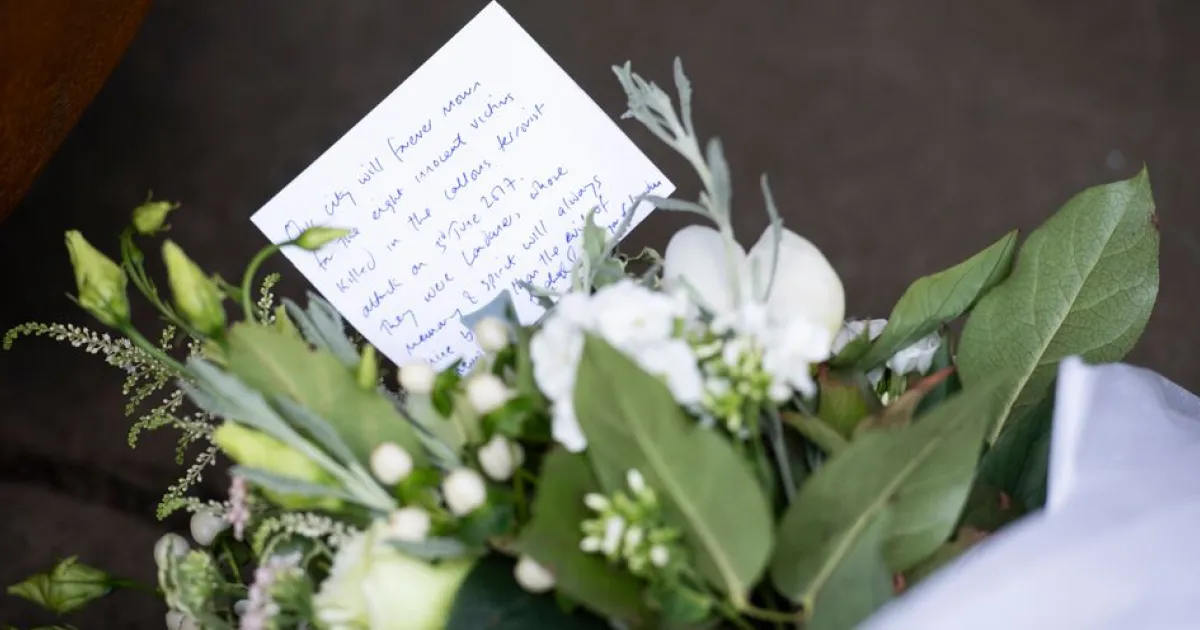 Our city will forever mourn
for the eight innocent victims
killed in the callous terrorist
attack on 3rd June 2017.
They were Londoners whose
memory & spirit will always
than the evil of